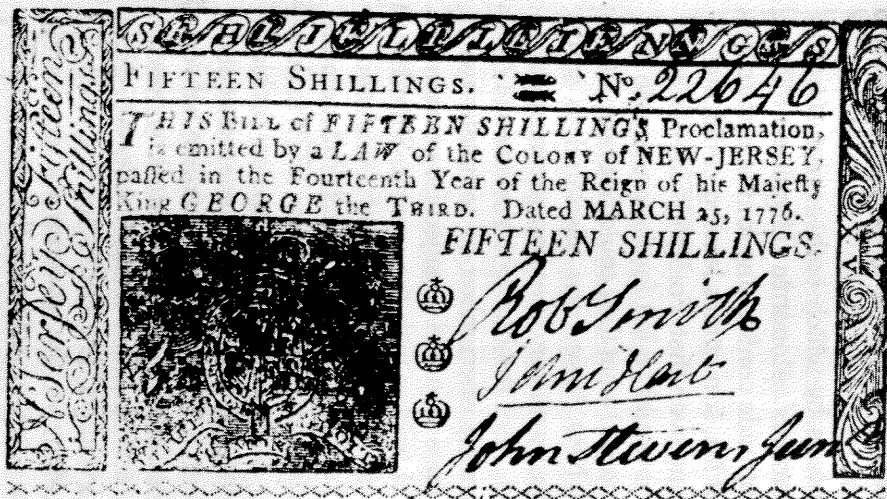 SSHHIILLLLIINNGGSS
FIFTEEN SHILLINGS. No. 22646
THIS BILL of FIFTEEN SHILLINGS, Proclamation,
is emitted by a LAW of the COLONY of NEW-JERSEY,
paſſed in the Fourteenth Year of the Reign of his Majeſty
King GEORGE the THIRD. Dated MARCH 25, 1776.
FIFTEEN SHILLINGS.
Rob Smith
John Hart
John Stevens Junr
Jerſey Fifteen
Shillings